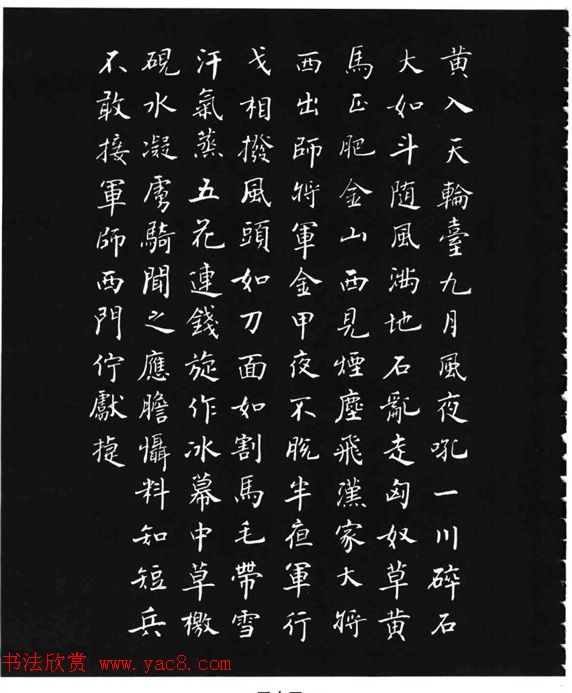 黄入天輪臺九月風夜吼一川碎石
大如斗随風滿地石亂走匈奴草黄
馬正肥金山西見煙塵飛漢家大將
西出師將軍金甲夜不脱半夜軍行
戈相撥風頭如刀面如割馬毛帶雪
汗氣蒸五花連錢旋作冰幕中草檄
硯水凝虜騎聞之應膽懾料知短兵
不敢接軍師西門佇獻捷
书法欣赏 www.yac8.com